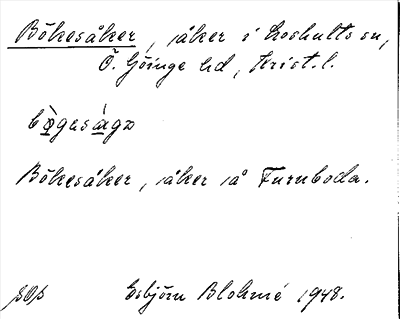 Bökesåker, åker i Loshults sn,
Ö. Göinge hd, Krist.l.
Bökesåker, åker på Furuboda.
Esbjörn Blohmé 1948.